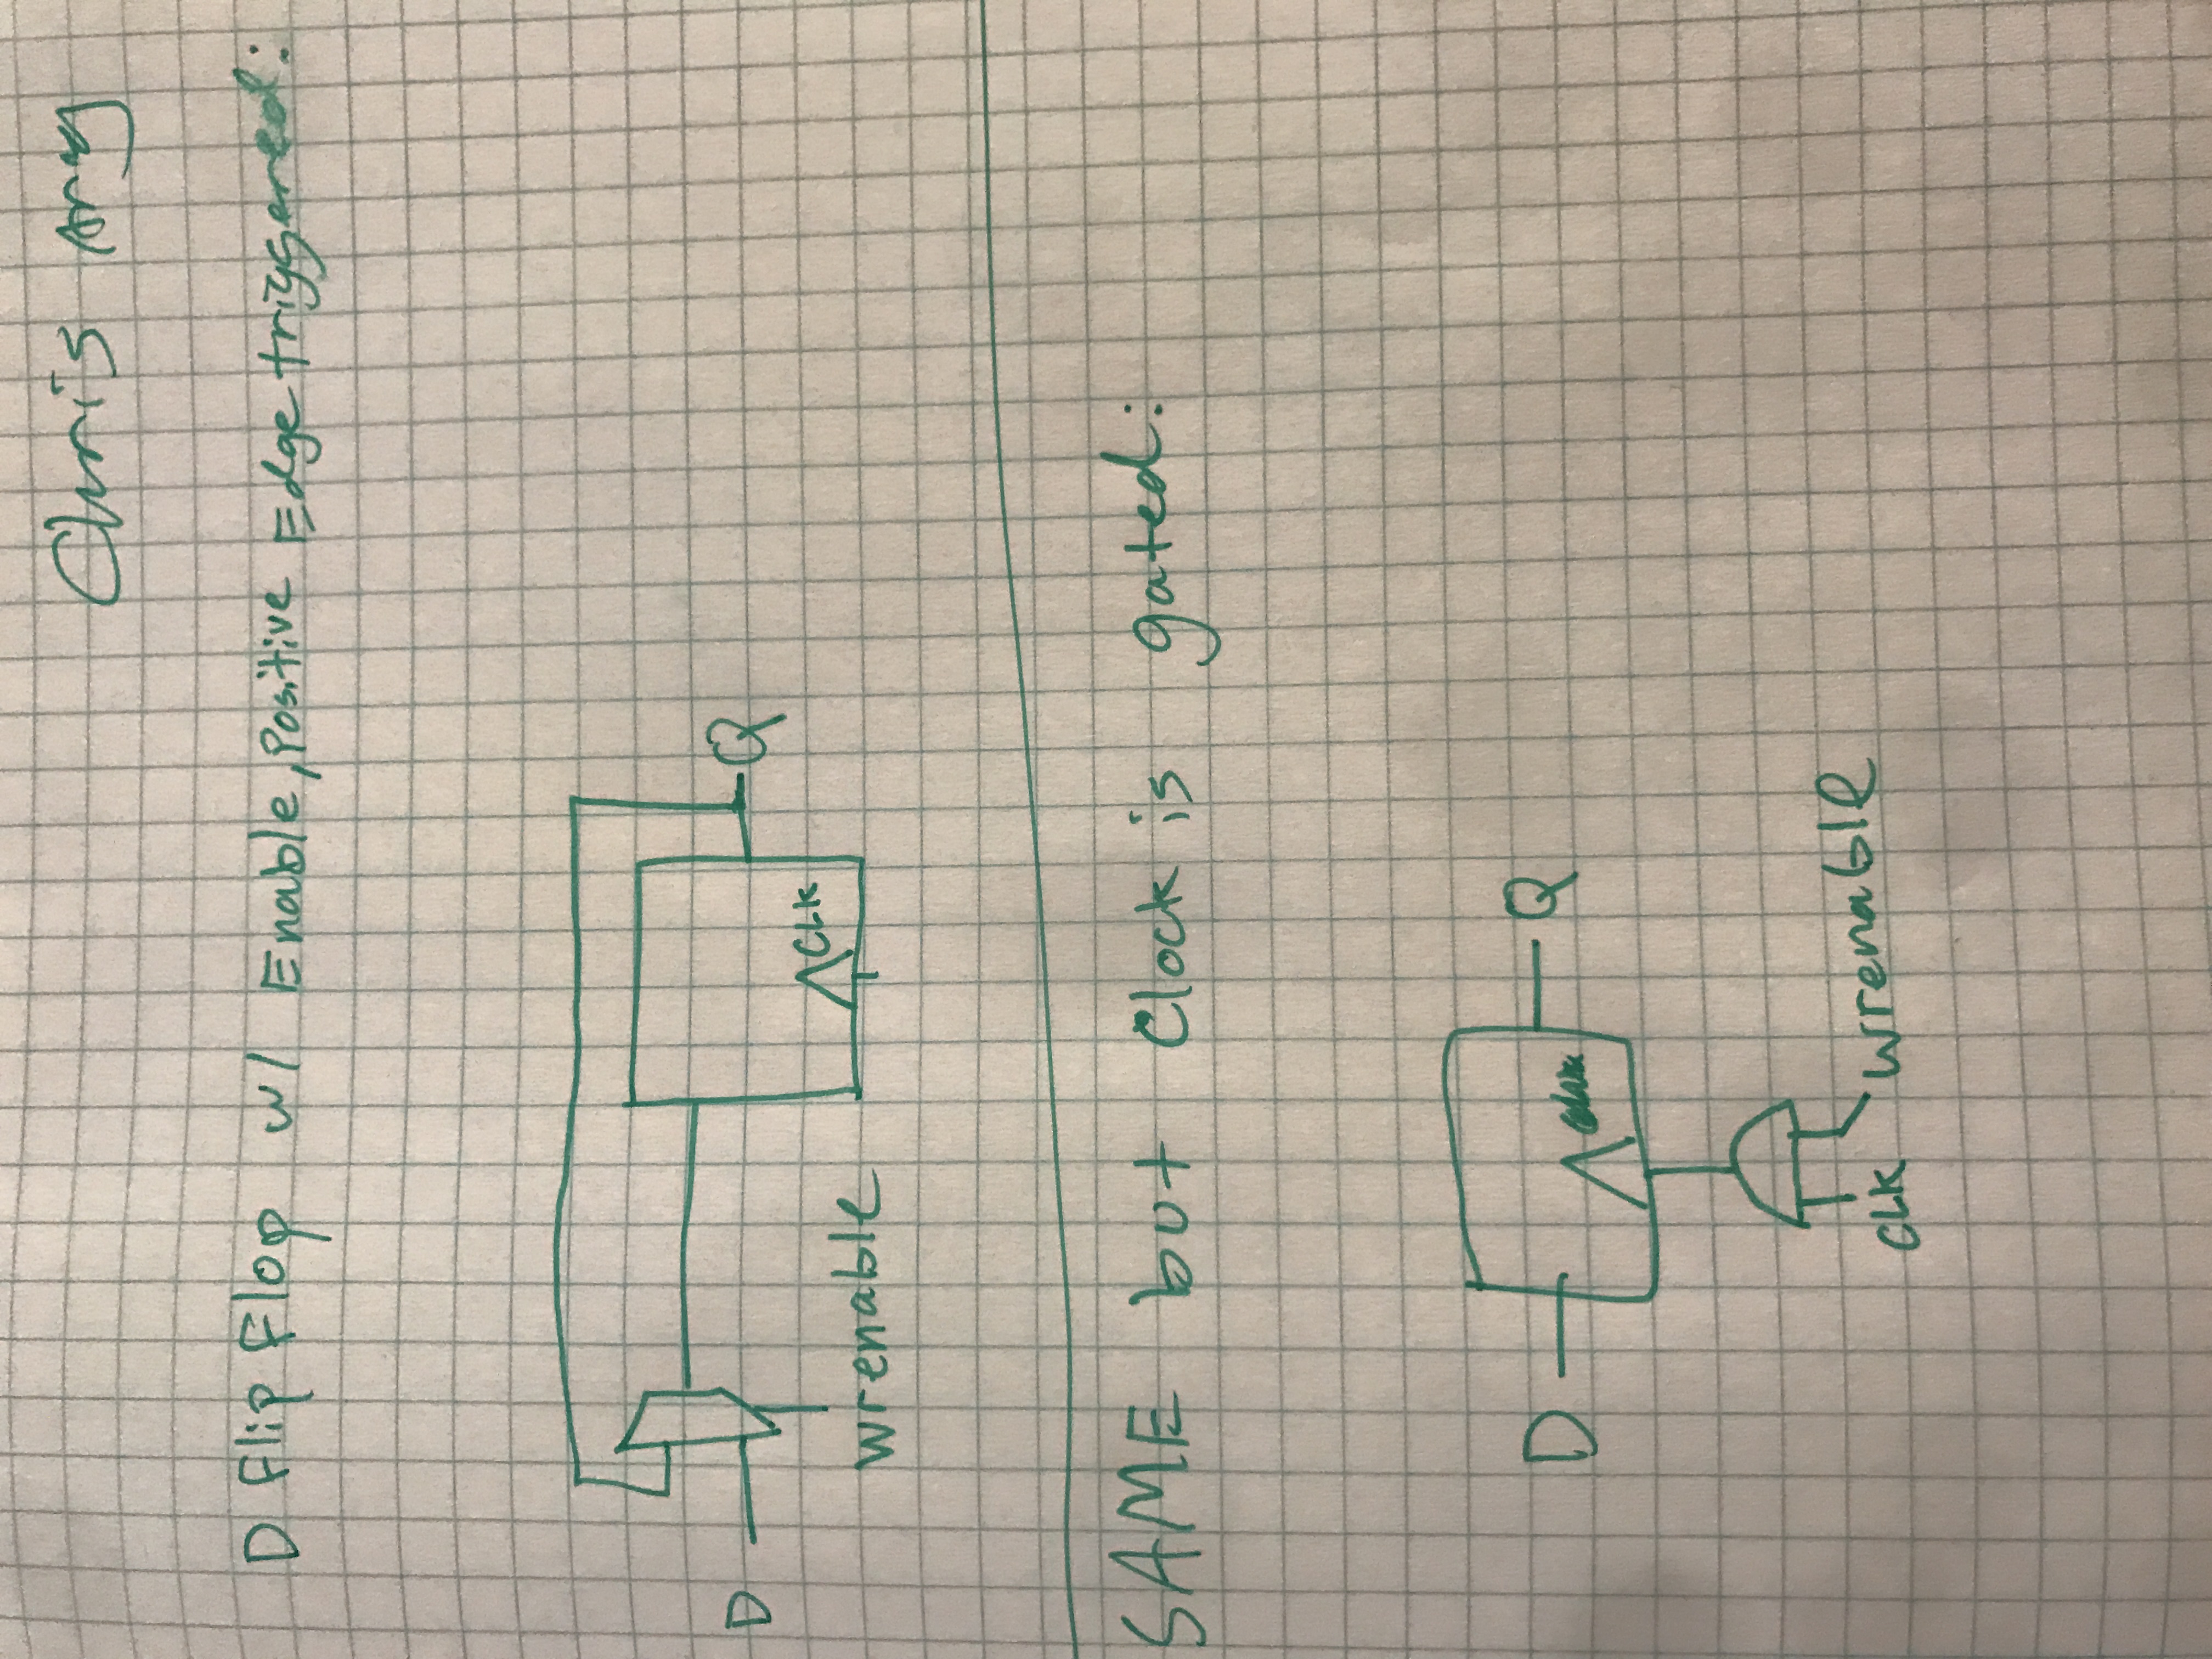 Chris
D Flip Flop w/ Enable, Positive Edge triggered:
D
Q
CLK
wrenable
SAME but Clock is gated:
D
Q
CLK
wrenable